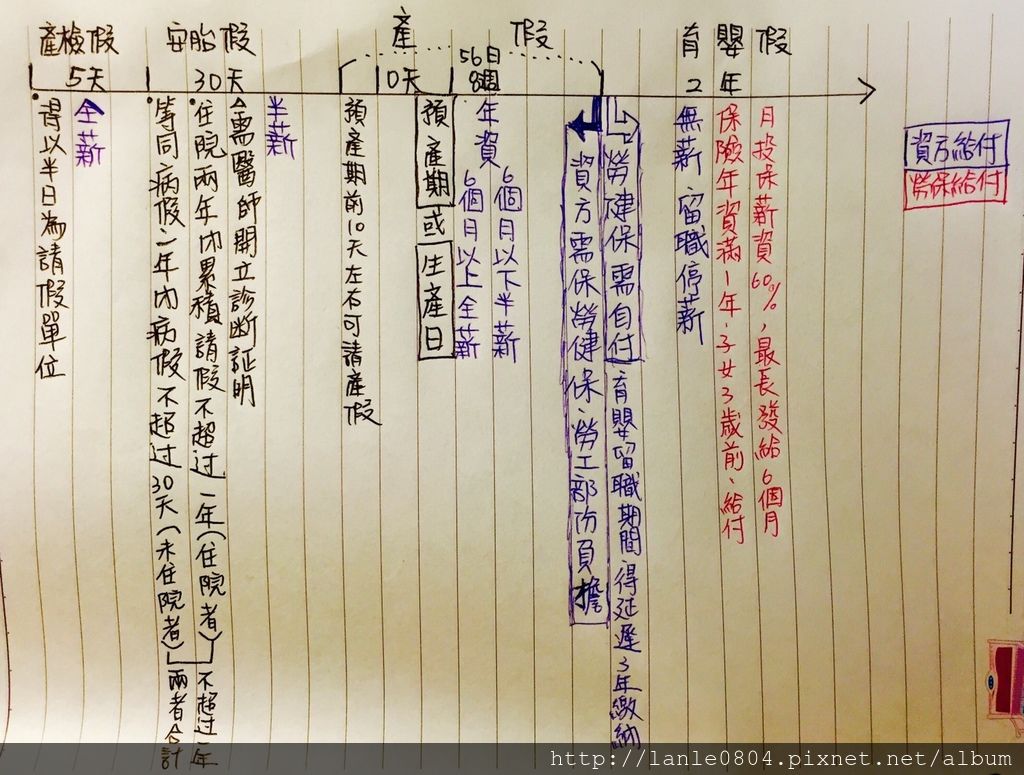 產檢假
安胎假
產假
育嬰假
5天
30天
10天
56日
8週
2年
全薪
得以半日為請假單位
半薪
全需醫師開立診斷証明
住院兩年內累積請假不超过一年(住院者)
等同病假一年內病假不超过30天(未住院者)
不超过一年
兩者合計
預產期前10天左右可請產假
預產期或生產日
年資
6個月以下半薪
6個月以上全薪
資方需保勞健保、勞工部份負擔
勞健保需自付
育嬰留職期間得延遲3年繳納
無薪留職停薪
月投保薪資60%,最長發給6個月
保險年資滿1年、子女3歲前、給付
資方給付
勞保給付
http://lanle0804.pixnet.net/album